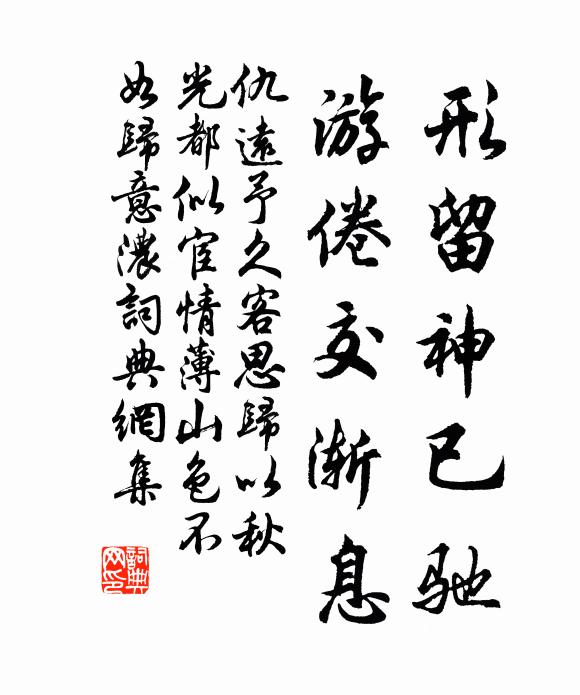 形留神已驰
游倦交渐息
仇遠予久客思歸以秋
光都似宦情薄山色不
如歸意濃詞典網集
詞典
网印